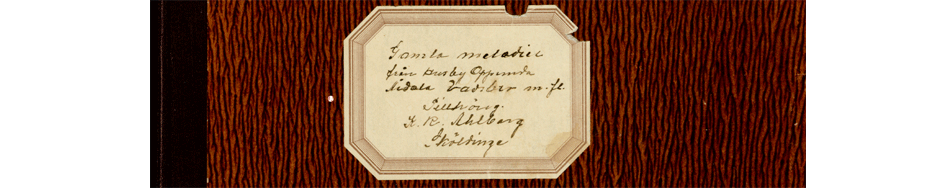 Gamla melodier
från Husby Oppunda
Lidala Vadsbro m. fl.
Tillhörig.
K. R. Ahlberg
Sköldinge